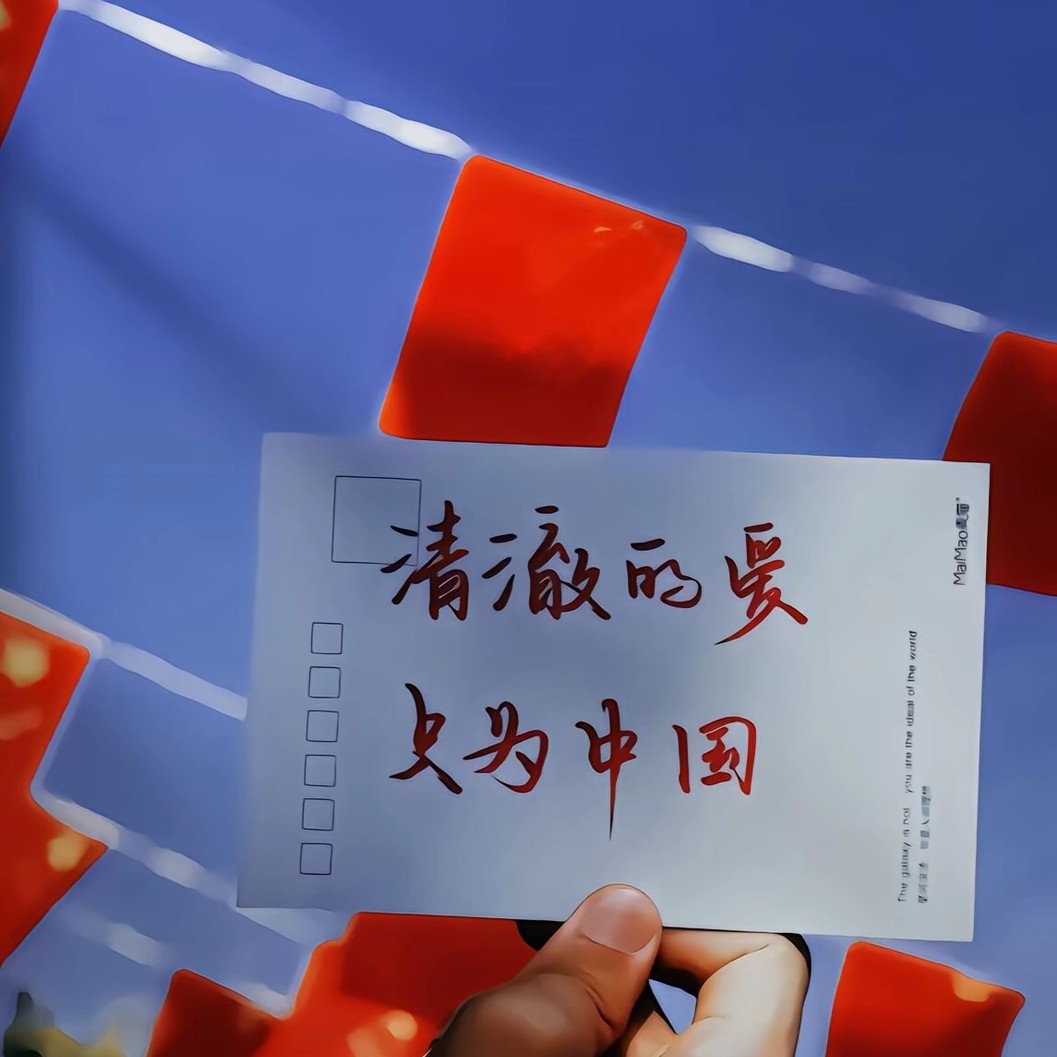 清澈的爱
只为中国
MaiMaoMal
The galaxy is not you are the ideal of the world